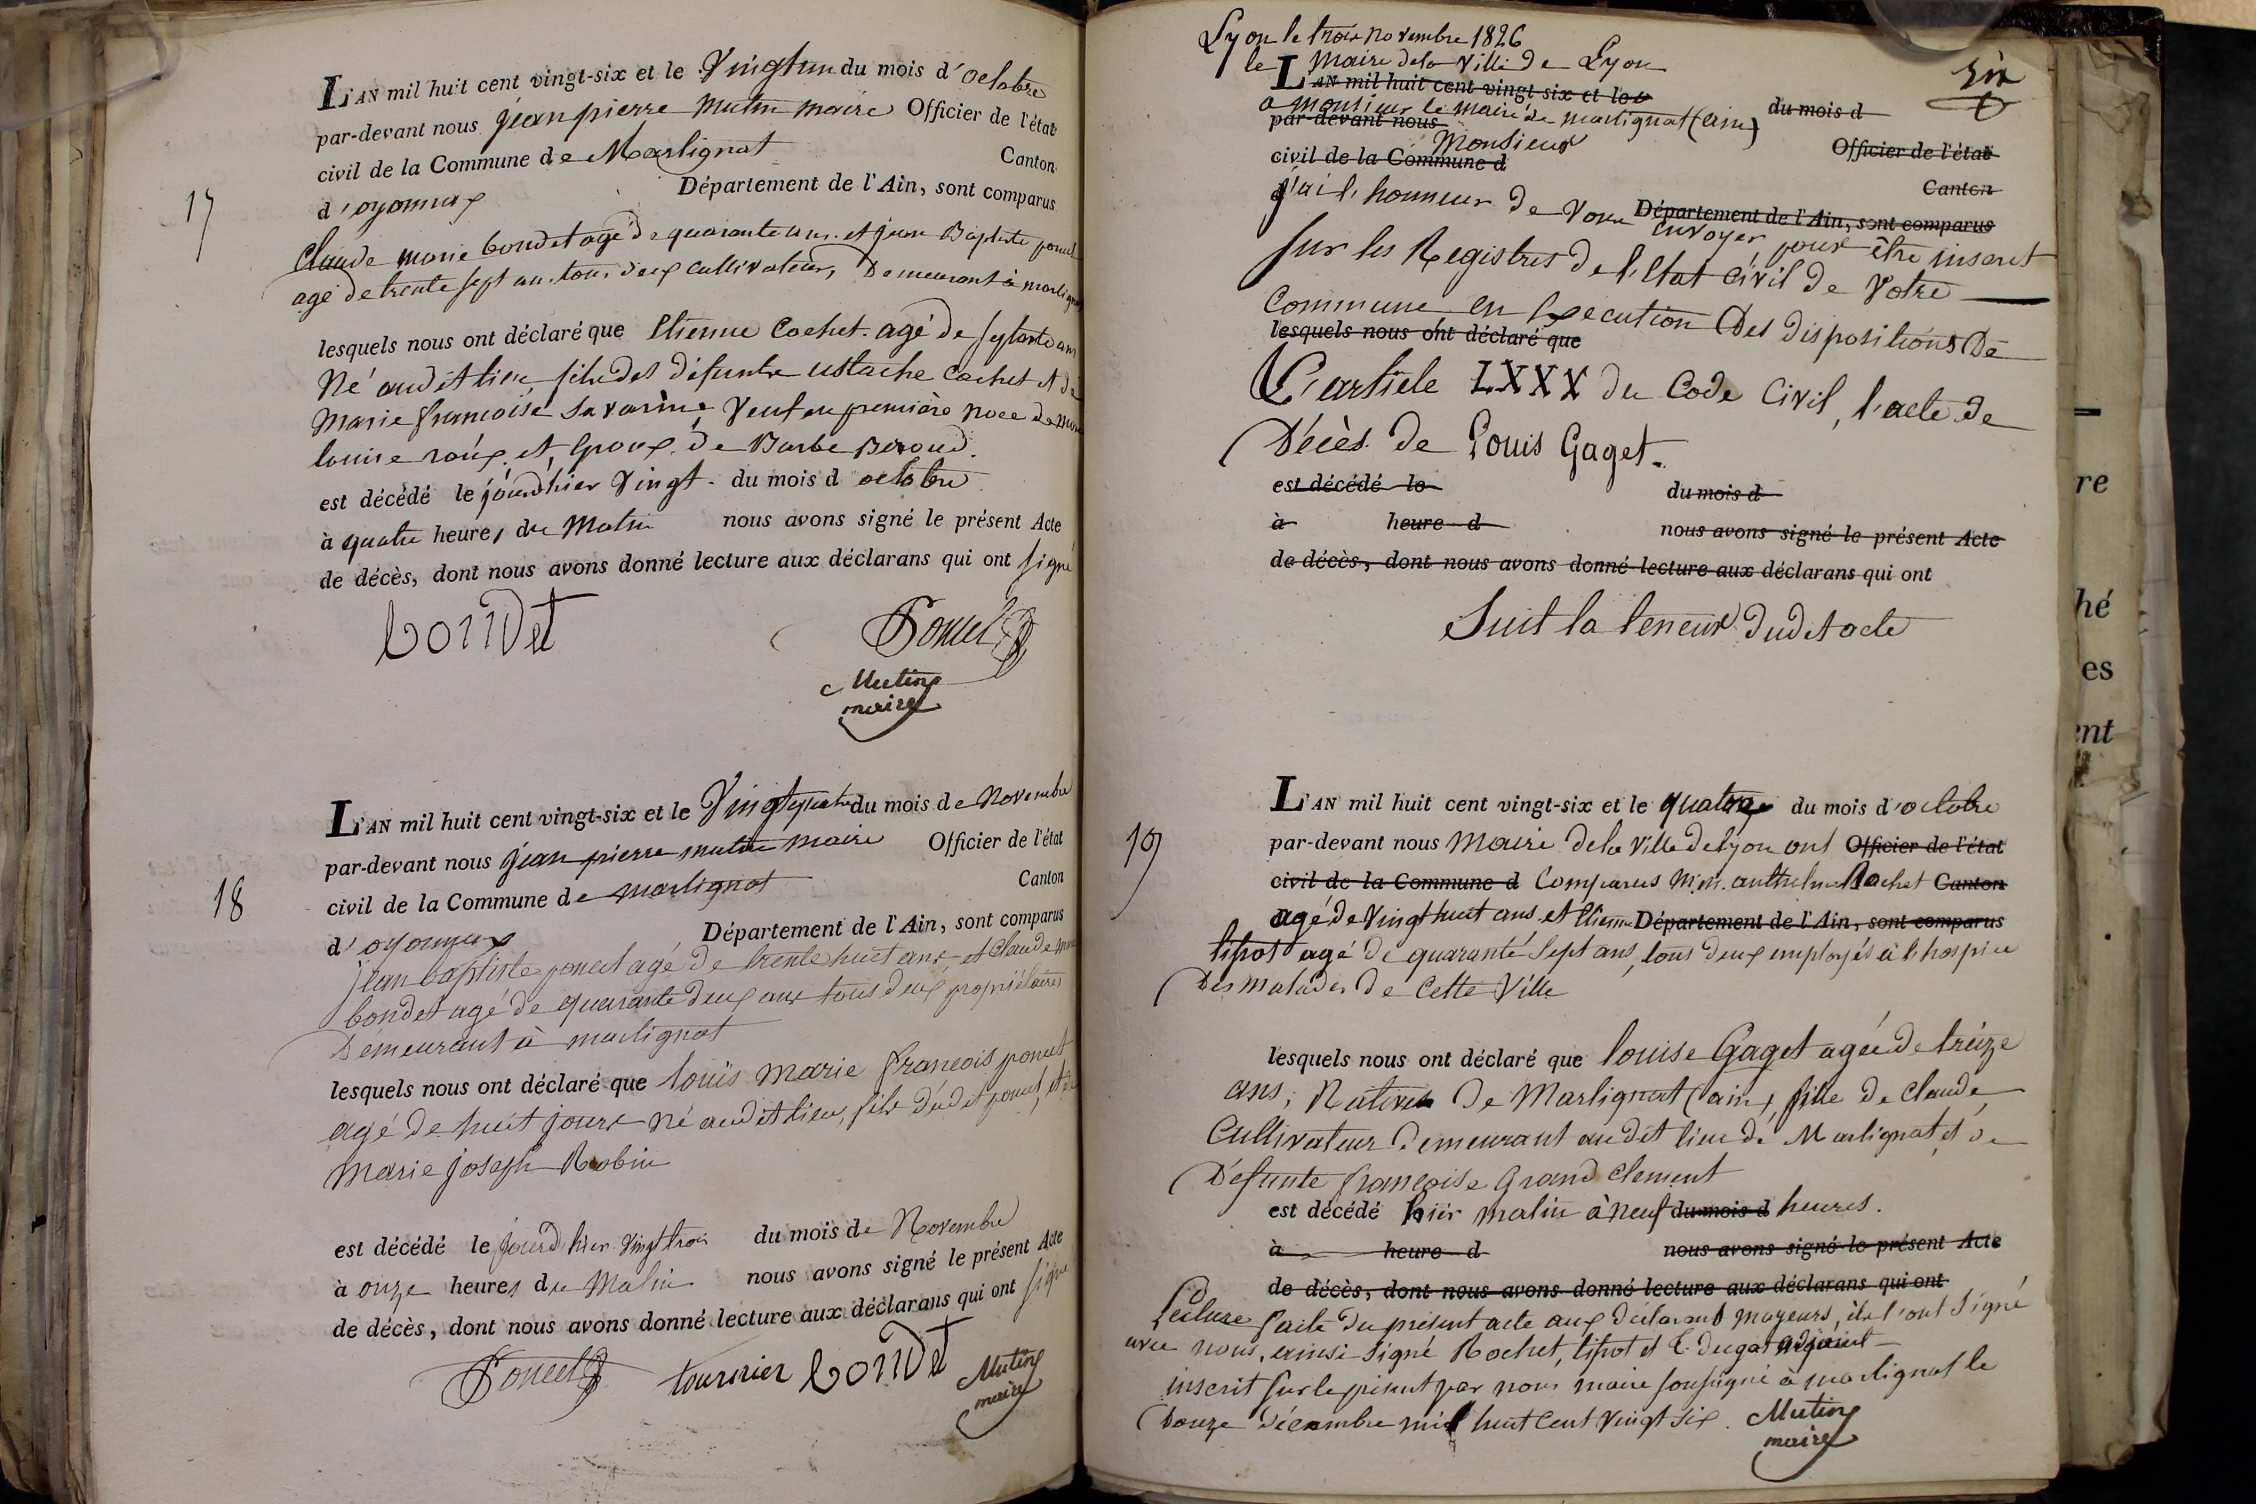 L'AN mil huit cent vingt-six et le Vingtun du mois d'octobre
par-devant nous jean pierre Mutin maire Officier de l'état
civil de la Commune de Martignat Canton
d'oyonnax Département de l'Ain, sont comparus
17
Claude marie bondet agé de quarante ans et jean Baptiste poncet
agé de trente sept ans tous deux cultivateurs, Demeurant à martignat
lesquels nous ont déclaré que Etienne Cochet agé de septante ans
Né audit lieu fils des défunts ustache Cochet et de
Marie francoise Savarine, Veuf en première noce de marie
louise roux et Epoux de Barbe Beroud.
est décédé le jourdhier Vingt du mois d octobre
à quatre heures du Matin nous avons signé le présent Acte
de décès, dont nous avons donné lecture aux déclarans qui ont signé
bondet Poncet
Mutin
maire
L'AN mil huit cent vingt-six et le Vingtquatre du mois de Novembre
par-devant nous jean pierre mutin maire Officier de l'état
civil de la Commune de martignat Canton
18
d'oyonnax Département de l'Ain, sont comparus
jean baptiste poncet agé de trente huit ans et Claude marie
bondet agé de quarante deux ans tous deux propriétaires
Demeurant à martignat
lesquels nous ont déclaré que louis marie francois poncet
agé de huit jours né audit lieu, fils dudit poncet, et de
marie joseph Robin
est décédé le jourd hier vingt trois du mois de Novembre
à onze heures du Matin nous avons signé le présent Acte
de décès, dont nous avons donné lecture aux déclarans qui ont signé
Poncet tournier bondet Mutin
maire
Lyon le trois novembre 1826
le Maire de la Ville de Lyon
six
L'AN mil huit cent vingt-six et le du mois d
a monsieur le maire de martignat (ain)
par-devant nous Officier de l'état
Monsieur
civil de la Commune d Canton
j'ai l'honneur de vous Département de l'Ain, sont comparus
envoyer pour être inscrit
sur les Registres de l'Etat civil de Votre
Commune en Execution Des dispositions De
lesquels nous ont déclaré que
L'article LXXX du Code Civil, l'acte de
Décès de Louis Gaget.
est décédé le du mois d
à heure d nous avons signé le présent Acte
de décès, dont nous avons donné lecture aux déclarans qui ont
Suit la teneur dudit acte
L'AN mil huit cent vingt-six et le quatorze du mois d'octobre
par-devant nous Maire de la Ville de lyon ont Officier de l'état
19
civil de la Commune d Comparus M.M. anthelme Rochet Canton
agé de Vingt huit ans et Etienne Département de l'Ain, sont comparus
tipot agé de quarante sept ans, tous deux employés à l'hospice
Des malades de Cette Ville
lesquels nous ont déclaré que louise Gaget agée de treize
ans, Native De Martignat (ain), fille de Claude,
Cultivateur demeurant audit lieu de Martignat, et de
Défunte francoise Grand Clement
est décédé hier matin à neuf du mois d heures.
à heure d nous avons signé le présent Acte
de décès, dont nous avons donné lecture aux déclarans qui ont
Lecture faite du présent acte aux déclarants majeurs, ils l'ont signé
avec nous, ainsi signé Rochet, tipot et E. dugat adjoint
inscrit sur le présent par nous maire soussigné à martignat le
Douze décembre mil huit Cent Vingt six. Mutin
maire